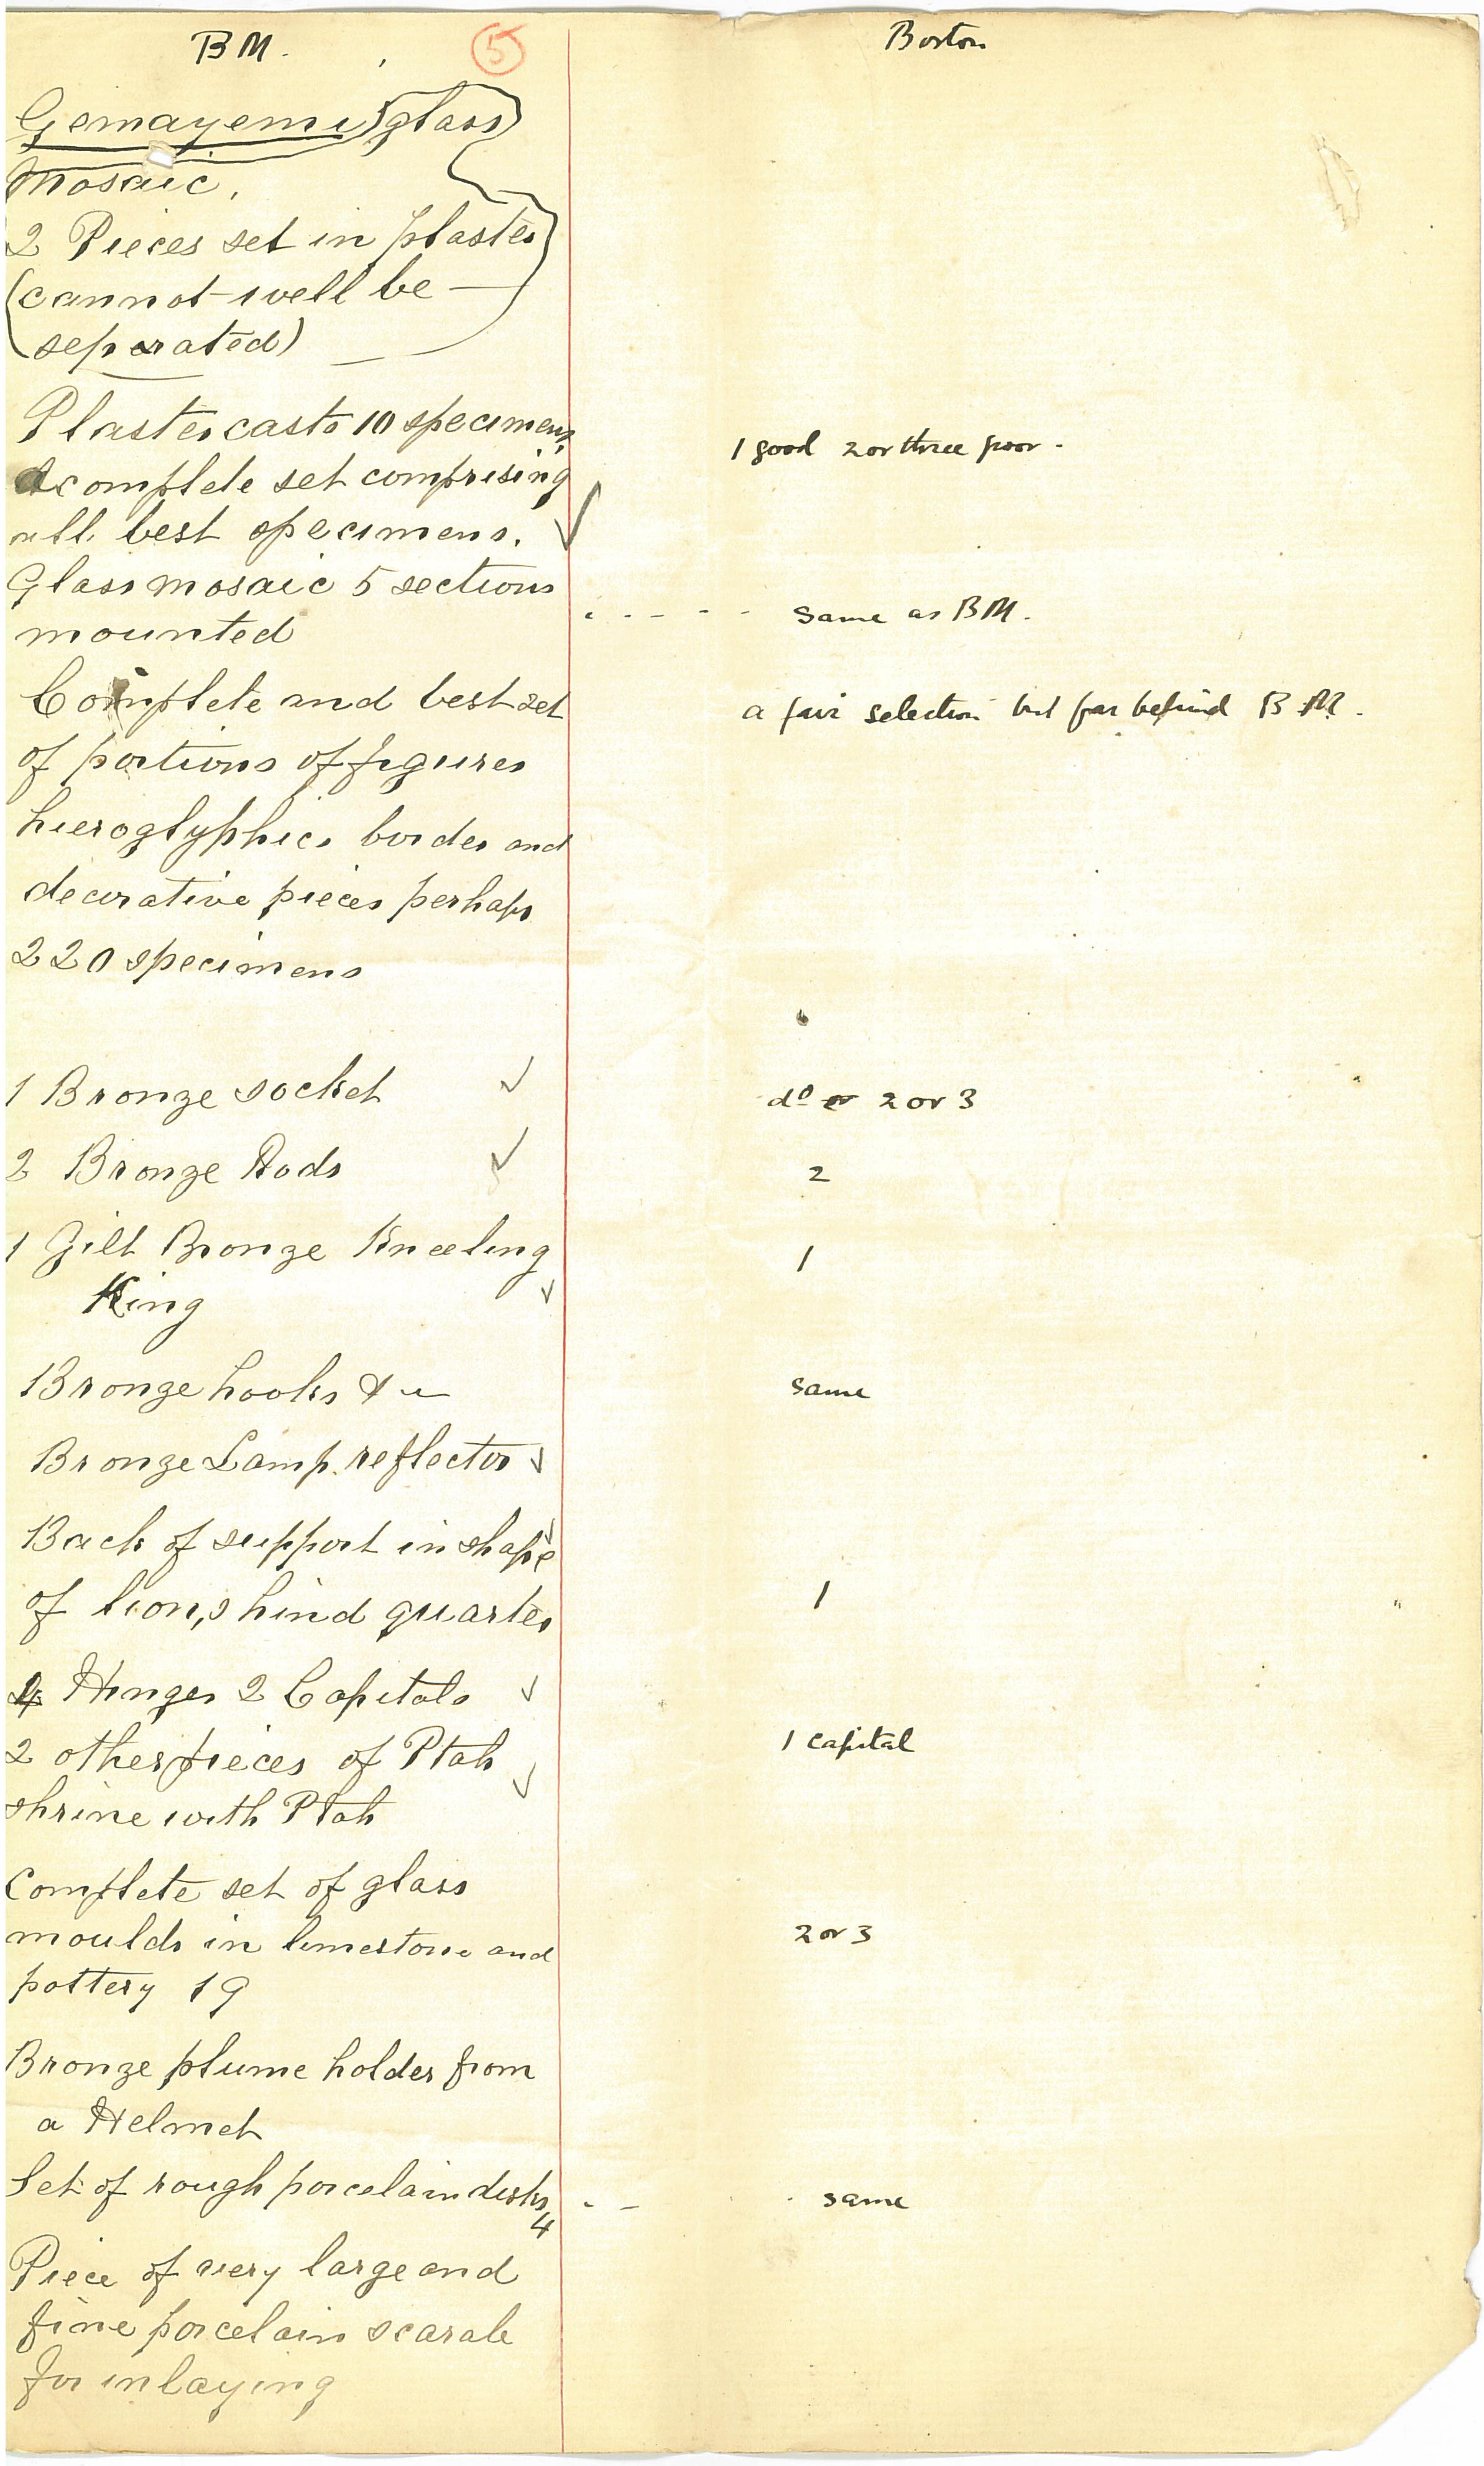 BM.
5
Boston
Gemayemi glass
Mosaic.
2 Pieces set in plaster
(cannot well be
separated)
Plaster casts 10 specimens,
A complete set comprising
all best specimens.
1 good 2 or three poor -
Glass mosaic 5 sections
mounted
same as BM.
Complete and best set
of portions of figures
hieroglyphics border and
decorative pieces perhaps
220 specimens
a fair selection but far behind BM.
1 Bronze socket
do or 2 or 3
2 Bronze Rods
2
1 Gilt Bronze Kneeling
King
1
Bronze hooks &c
same
Bronze Lamp reflector
Back of support in shape
of lion,s hind quarter
1
4 Hinges 2 Capitals
2 other pieces of Ptah
shrine with Ptah
1 capital
Complete set of glass
moulds in limestone and
pottery 19
2 or 3
Bronze plume holder from
a Helmet
Set of rough porcelain disks
4
same
Piece of very large and
fine porcelain scarab
for inlaying